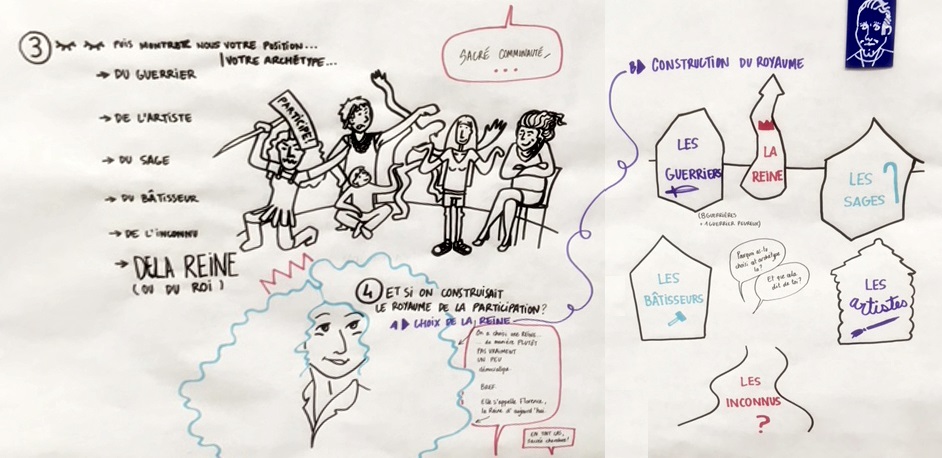 3 PUIS MONTRER NOUS VOTRE POSITION...
VOTRE ARCHÉTYPE...
→ DU GUERRIER
→ DE L'ARTISTE
→ DU SAGE
→ DU BÂTISSEUR
→ DE L'INCONNU
→ DE LA REINE
(OU DU ROI)
PARTICIPE!
SACRÉ COMMUNAUTÉ,
...
4 ET SI ON CONSTRUISAIT
LE ROYAUME DE LA PARTICIPATION?
CHOIX DE LA REINE
On a choisi une Reine...
... de manière PLUTÔT
PAS VRAIMENT
UN PEU
démocratique.
BREF
Elle s'appelle Florence,
la Reine d'aujourd'hui
EN TOUT CAS,
CONSTRUCTION DU ROYAUME
LES
GUERRIERS
(8 GUERRIÈRES
+ 1 GUERRIER PEUREUX)
LA
REINE
LES
SAGES
LES
BÂTISSEURS
Pourquoi as-tu
choisi cet archétype
là?
Et que cela
dit de toi?
LES
artistes
LES
INCONNUS
?